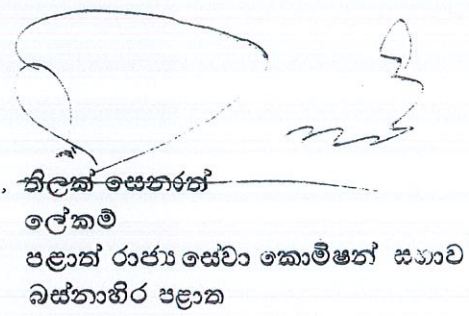 තිලක් සෙනරත්
ලේකම්
පළාත් රාජ්‍ය සේවා කොමිෂන් සභාව
බස්නාහිර පළාත